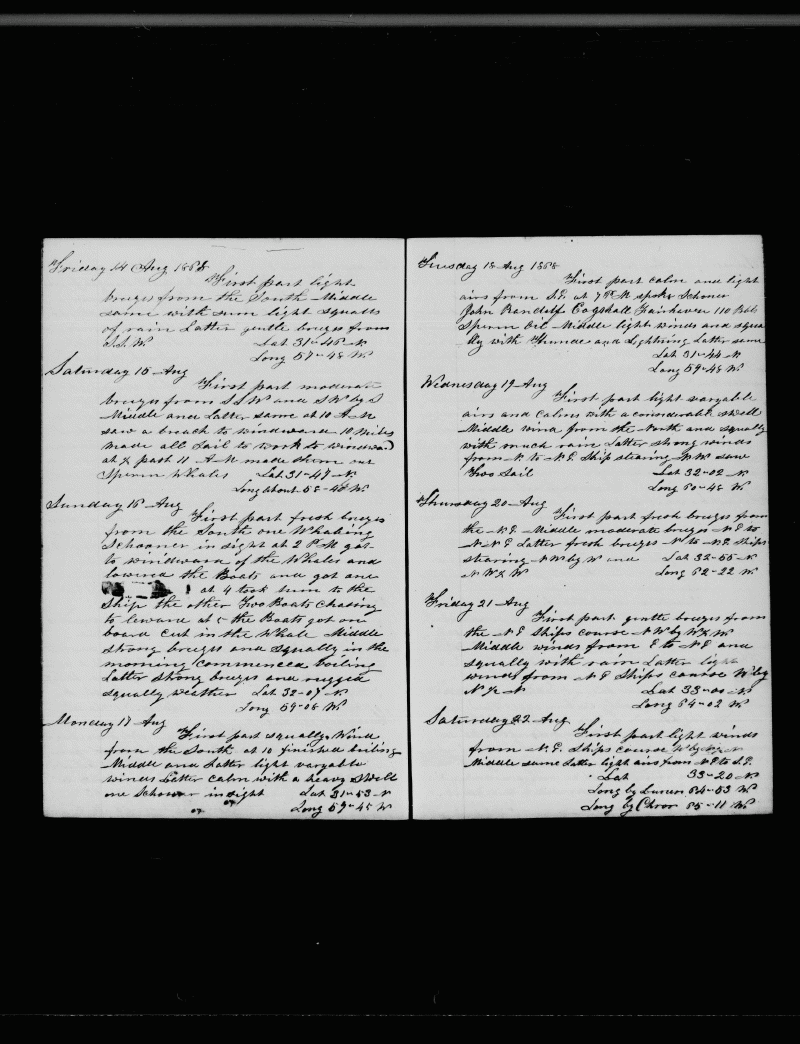 Friday 14 Aug 1868
First part light
breezes from the South Middle
same with sum light squalls
of rain Latter gentle breezes from
S.S.W Lat 31-46-N
Long 57-48 W
Saturday 15 Aug
First part moderate
breezes from S.S.W and S.W by S
Middle and Latter same at 10 A-M
saw a breach to windward 10 miles
made all sail to work to windward
at ½ past 11 A-M made them out
Sperm Whales Lat 31-47-N
Long about 58-48 W.
Sunday 16 Aug
First part fresh breezes
from the South one Whaling
Schooner in sight at 2 P.M got
to windward of the Whales and
lowered the Boats and got one
at 4 took him to the
Ship the other Two Boats chasing
to leward at 5 the Boats got on
board cut in the Whale Middle
strong breezes and squally in the
morning commenced boiling
Latter strong breezes and rugged
squally weather Lat 32-07-N
Long 59-08 W.
Monday 17 Aug
First part squally Wind
from the South at 10 finished boiling
Middle and Latter light varyable
winds Latter calm with a heavy swell
one Schooner in sight Lat 31-53-N
Long 59-45 W
Tuesday 18 Aug 1868
First part calm and light
airs from S.E. at 7 P.M spoke Schoner
John Randolf Cogshall Fairhaven 110 Bbls
Sperm Oil Middle light winds and squa
lly with Thunde and Lightning Latter same
Lat 31-44-N
Long 59-48 W.
Wednesday 19 Aug
First part light varyable
airs and Calms with a considerable swell
Middle wind from the North and squally
with much rain Latter strong winds
from N to N.E Ship stearing N.W saw
Two Sail Lat 32-02-N
Long 60-48 W.
Thursday 20 Aug
First part fresh breezes from
the N.E. Middle moderate breezes N.E to
N.N.E Latter fresh breezes N to N.E Ships
stearing N.W by W and Lat 32-56-N
N.W ½ W Long 62-22 W.
Friday 21 Aug
First part gentle breezes from
the N.E Ships course N.W by W ½ W
Middle winds from E to N.E and
squally with rain Latter light
winds from N.E Ships course W by
N ½ N Lat 33-00-N
Long 64-02 W.
Saturday 22 Aug.
First part light winds
from N.E. Ships course W by N ½ N
Middle same Latter light airs from N.E to S.E.
Lat 33-20-N
Long by Lunar 64-53 W
Long by Chror 65-11 W.